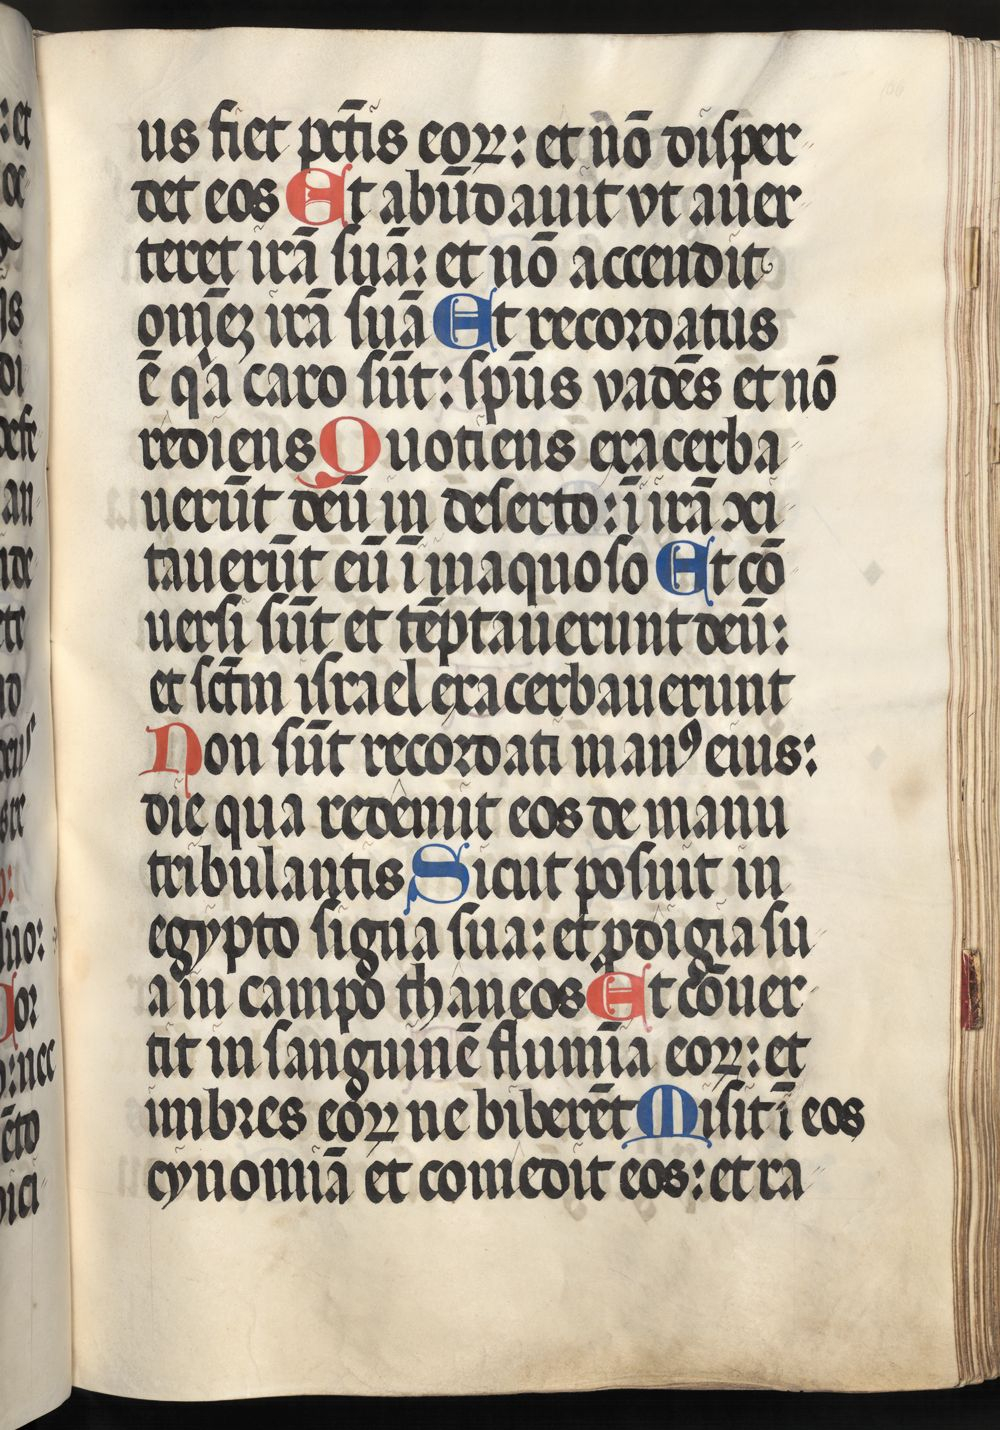 us fiet pctīs eoꝝ: et nō disper
det eos Et abūdauit vt auer
teret irā suā: et nō accendit
omēꝫ irā suā Et recordatus
ē qͥa caro sūt: spūs vadēs et nō
rediens Quotiens exacerba
uerūt deū in deserto: ī irā ꝯci
tauerūt eū ī inaquoso Et cō
uersi sūt et tēptauerunt deū:
et sctm̄ israel exacerbauerunt
Non sūt recordati manꝰ eius:
die qua redemit eos de manu
tribulantis Sicut posuit in
egypto signa sua: et ꝓdigia su
a in campo thaneos Et cōuer
tit in sanguinē flumīa eoꝝ: et
imbres eoꝝ ne biberēt Misit ī eos
cynomiā et comedit eos: et ra